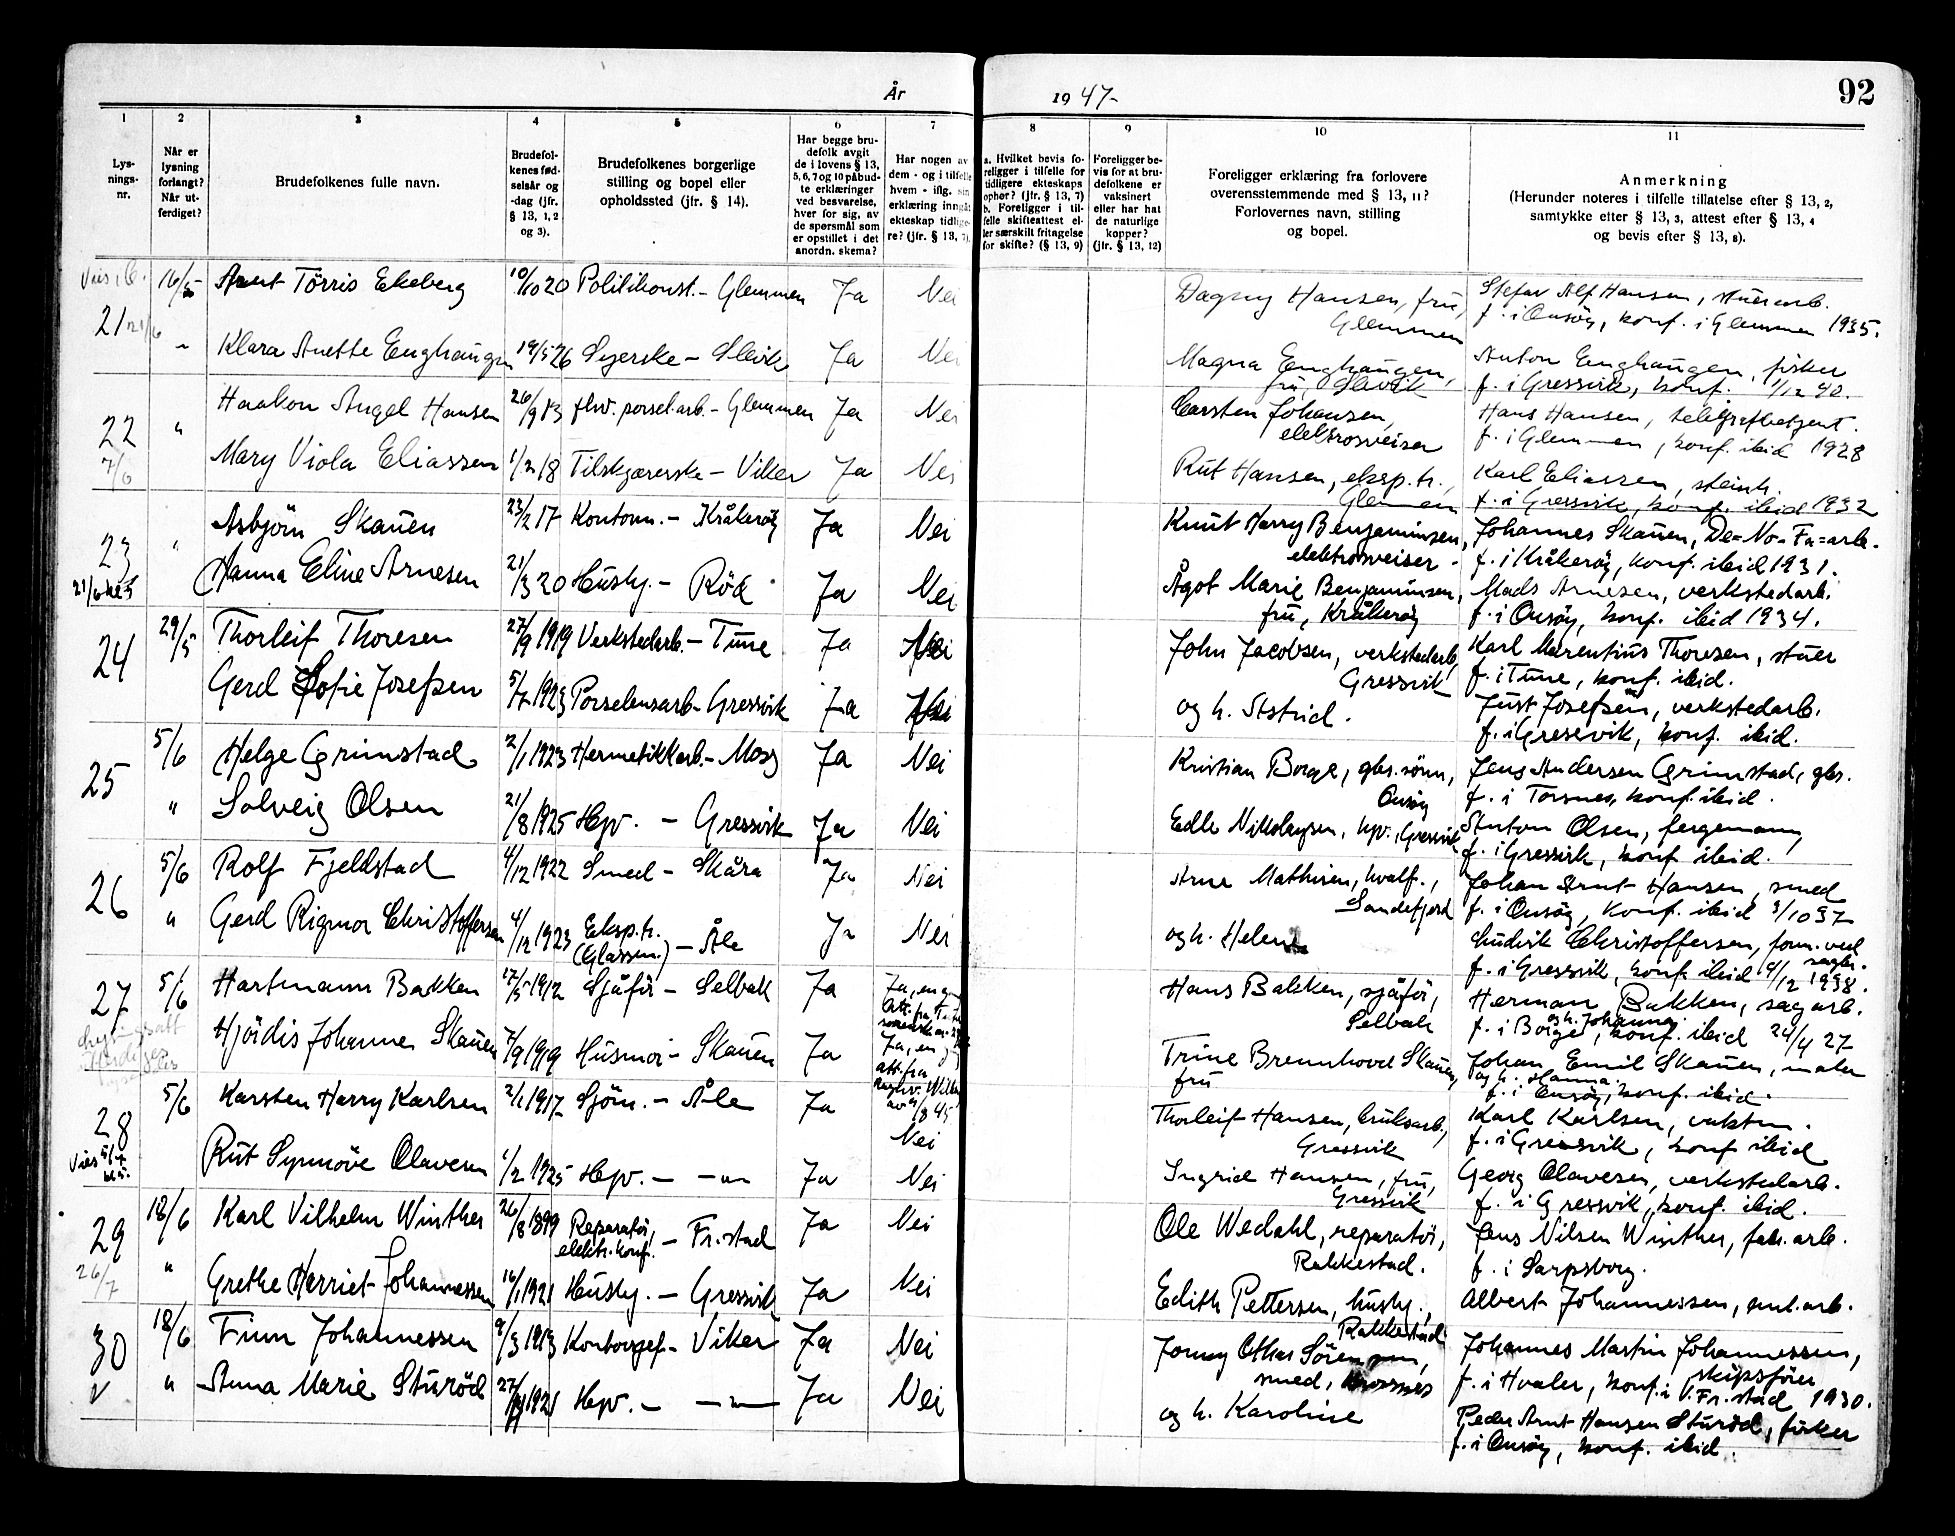 År 1947-
92
1 2 3 4 5 6 7 8 9 10 11
Lys-
nings-
nr.
Når er
lysning
forlangt?
Når ut-
ferdiget?
Brudefolkenes fulle navn.
Brudefol-
kenes fød-
selsår og
-dag (jfr.
§ 13, 1, 2
og 3).
Brudefolkenes borgerlige
stilling og bopel eller
opholdssted (jfr. § 14).
Har begge bru-
defolk avgit
de i lovens § 13,
5, 6, 7 og 10 påbud-
te erklæringer
ved besvarelse,
hver for sig, av
de spørsmål som
er opstillet i det
anordn. skema?
Har nogen av
dem - og i tilfelle
hvem - iflg. sin
erklæring inngåt
ekteskap tidlige-
re? (jfr. § 13, 7).
a. Hvilket bevis fo-
religger i tilfelle for
tidligere ekteskaps
ophør? (jfr. § 13, 7)
b. Foreligger i til-
felle skifteattest el-
ler særskilt fritagelse
for skifte? (§ 13, 9)
Foreligger be-
vis for at bru-
defolkene er
vaksinert
eller har hat
de naturlige
kopper?
(jfr. § 13, 12)
Foreligger erklæring fra forlovere
overensstemmende med § 13, 11?
Forlovernes navn, stilling
og bopel.
Anmerkning
(Herunder noteres i tilfelle tillatelse efter § 13, 2,
samtykke efter § 13, 3, attest efter § 13, 4
og bevis efter § 13, 8).
21 16/5 Arnt Törris Ekeberg 10/10 20 Politikonst. - Glemmen Ja Nei Dagny Hansen, fru, Glemmen
Stefar Alf Hansen, stuerarb.
f. i Onsöy, konf. i Glemmen 1935.
" Klara Anette Enghaugen 19/5 26 Syerske - Slevik Ja Nei Magna Enghaugen, fru, Slevik
Anton Enghaugen, fisker
f. i Gressvik, konf. 1/12 40.
22 7/6 " Haakon Angel Hansen 26/9 13 fhv. porsel.arb. - Glemmen Ja Nei Carsten Johansen, elektrosveiser
Hans Hansen, telegrafbetjent.
f. i Glemmen, konf. ibid 1928
Mary Viola Eliassen 1/2 18 Tilskjærerske - Viker Ja Nei Rut Hansen, eksp.tr., Glemmen
Karl Eliassen, steinh.
f. i Gressvik, konf. ibid 1932
23 " Asbjörn Skauen 23/2 17 Kontorm. - Kråkeröy Ja Nei Knut Harry Benjaminsen, elektrosveiser -
Johannes Skauen, De=No=Fa=arb.
f. i Kråkeröy, konf. ibid 1931.
21/6 kl 5 Hanna Eline Arnesen 21/3 20 Hushj. - Röd Ja Nei Ågot Marie Benjaminsen, fru, Kråkeröy
Mads Arnesen, verkstedarb.
f. i Onsöy, konf. ibid 1934.
24 29/5 Thorleif Thoresen 27/9 1919 Verkstedarb. - Tune Ja Nei John Jacobsen, verkstedarb, Gressvik
Karl Marentius Thoresen, stuer
f. i Tune, konf. ibid.
Gerd Sofie Josefsen 5/7 1923 Porselensarb - Gressvik Ja Nei og h. Astrid.
Just Josefsen, verkstedarb.
f. i Gressvik, konf. ibid.
25 5/6 Helge Grimstad 2/1 1923 Hermetikkarb. - Moss Ja Nei Kristian Borge, gbr.sönn, Onsöy
Jens Andersen Grimstad, gbr.
f. i Torsnes, konf. ibid.
" Solveig Olsen 21/8 1925 Hjv. - Gressvik Ja Nei Edle Nikolaysen, hjv., Gressvik
Anton Olsen, fergemann,
f. i Gressvik, konf ibid.
26 5/6 Rolf Fjellstad 4/12 1922 Smed - Skåra Ja Nei Arne Mathisen, hvalf., Sandefjord
Johan Arnt Hansen, smed
f. i Onsöy, konf. ibid 3/10 37
" Gerd Rigmor Christoffersen 4/12 1923 Eksp.tr. (Glassm.) - Åle Ja Nei og h. Helene
Ludvik Christoffersen, form. ved sagbr.
f. i Gressvik, konf. ibid 4/12 1938.
27 5/6 Hartmann Bakken 17/5 1912 Sjåför - Selbak Ja Ja, en g. Hans Bakken, sjåför, Selbak
Herman Bakken, sagarb. og h. Johanna
f. i Borge, konf. ibid 24/4 27
Hjördis Johanne Skauen 7/9 1919 Husmor - Skauen Ja Ja, en g. att. fra Trine Brennhovd Skauen, fru
Johan Emil Skauen, maler
og h. Hanna.
f. i Onsöy, konf. ibid.
28 5/6 Karsten Harry Karlsen 2/1 1917 Sjöm. - Åle Ja Nei Thorleif Hansen, bruksarb., Gressvik
Karl Karlsen, vaktm.
f. i Gressvik, konf ibid
Vies 5/7 kl 5. Rut Synnöve Olavesen 1/2 1925 Hjv. - - " - Ja Nei Ingrid Hansen, fru, Gressvik
Georg Olavesen, verkstedarb.
f. i Gressvik, konf. ibid.
29 18/6 Karl Vilhelm Winther 26/8 1899 Reparatör, elektr.konf. - Fr.stad Ja Nei Ole Wedahl, reparatör, Rakkestad.
Jens Nilsen Winther, fabr.arb.
f. i Sarpsborg.
26/7 " Grethe Harriet Johannessen 16/1 1921 Hushj. - Gressvik Ja Nei Edith Pettersen, hushj., Rakkestad
Albert Johannessen, mek.arb.
30 18/6 Finn Johannessen 9/3 1913 Kontorsjef - Viker Ja Nei Jonny Othar Sörensen, smed, Krossnes
Johannes Martin Johannessen, skipsförer
f. i Hvaler, konf. i V. Fr.stad 1930.
V " Anna Marie Sturöd 27/11 1921 Hjv. - - " - Ja Nei og h. Karoline
Peder Arnt Hansen Sturöd, fisker
f. i Onsöy, konf. ibid.